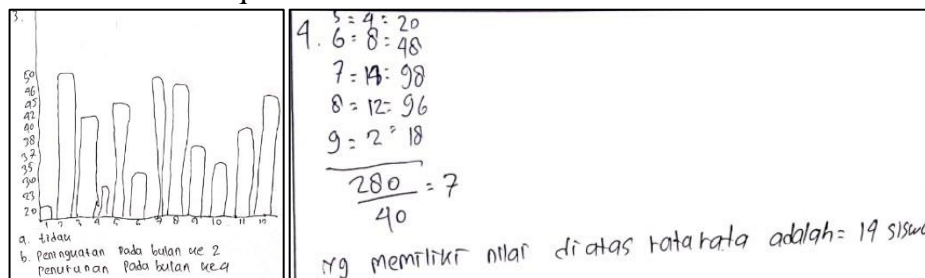 3.
50
46
45
42
40
38
37
35
30
23
20
1 2 3 4 5 6 7 8 9 10 11 12
a. tidak
b. Peningkatan Pada bulan ke 2
Penurunan Pada bulan ke 4
4. 5 = 4 = 20
6 = 8 = 48
7 = 14 = 98
8 = 12 = 96
9 = 2 = 18
280 = 7
40
yg memiliki nilai di atas rata rata adalah = 14 siswa